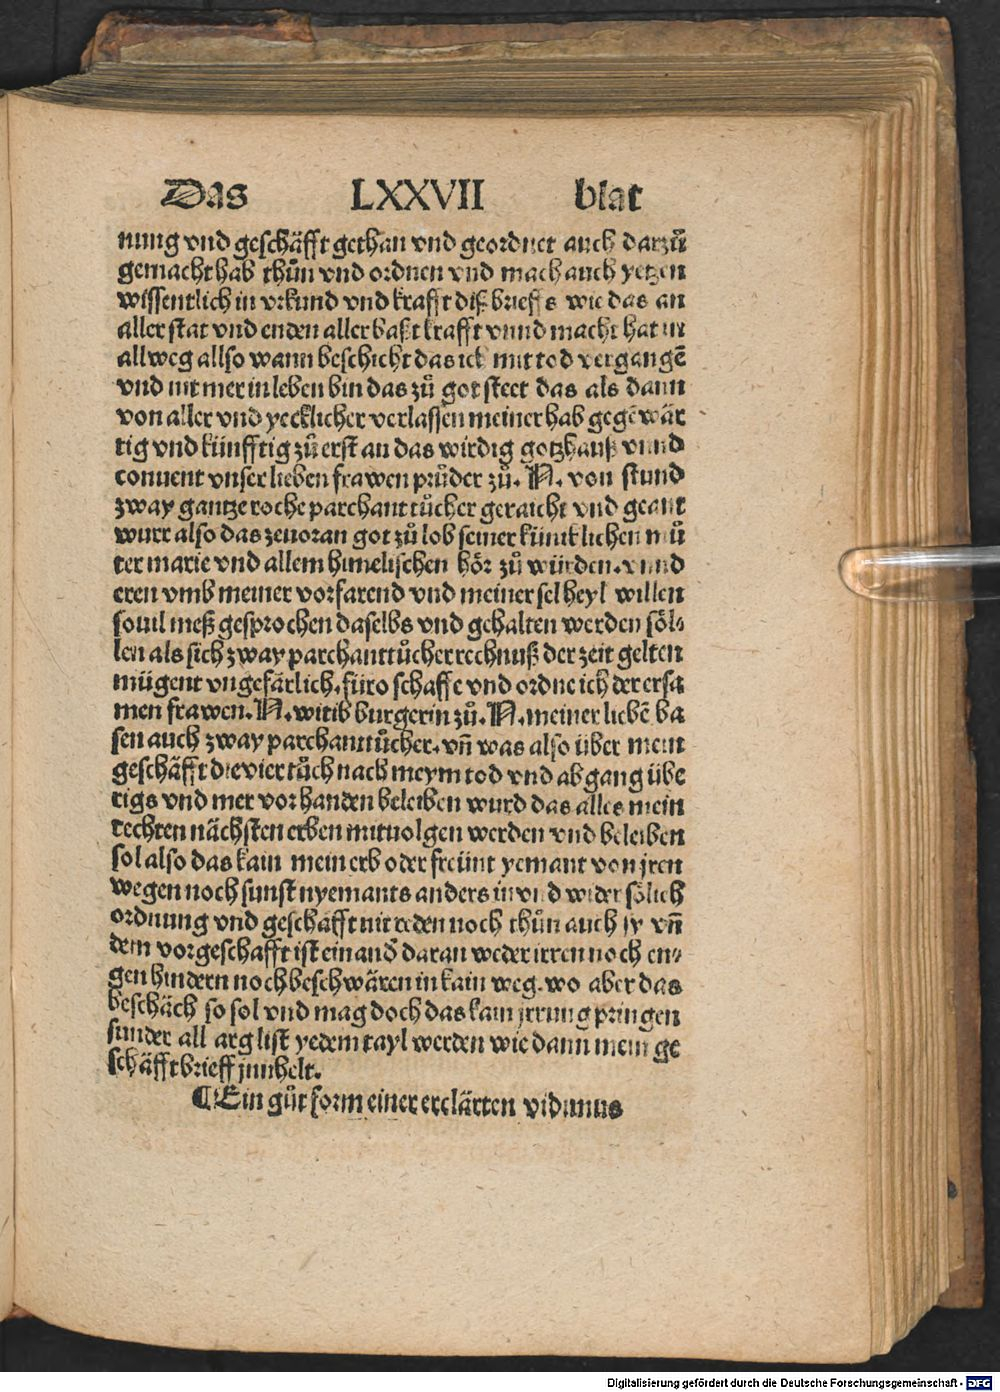 Das LXXVII blat
nung vnd geschäfft gethan vnd geordnet auch darzuͦ
gemacht hab thuͦn vnd ordnen vnd mach auch yetzen
wissentlich in vrkund vnd krafft diß brieffs wie das an
aller stat vnd enden aller baßt krafft vnnd macht hat in
allweg allso wann beschicht das ich mit tod vergangē
vnd nit mer in leben bin das zuͦ got steet das als dann
von aller vnd yecklicher verlassen meiner hab gegēwär
tig vnd künfftig zuͦ erst an das wirdig gotzhauß vnnd
conuent vnser lieben frawen pruͤder zuͦ. N. von stund
zway gantze roche parchant tuͤcher geraicht vnd geant
wurt also das zeuoran got zuͦ lob seiner künicklichen muͦ
ter marie vnd allem himelischen hör zuͦ würden. vnnd
eren vmb meiner vorfarend vnd meiner sel heyl willen
souil meß gesprochen daselbs vnd gehalten werden söl⸗
len als sich zway parchant tuͤcher rechnuß der zeit gelten
mügent vngefärlich. füro schaffe vnd ordne ich der ersa
men frawen. N. witib burgerin zuͦ. N. meiner liebē ba
sen auch zway parchant tuͤcher. vn̄ was also über mein
geschäfft die vier tuͤch nach meym tod vnd abgang übe
rigs vnd mer vorhanden beleiben wurd das alles mein
rechten nächsten erben mituolgen werden vnd beleiben
sol also das kain mein erb oder freünt yemant von jren
wegen noch sunst nyemants anders in vnd wider sölich
ordnung vnd geschäfft nit reden noch thuͦn auch sy vn̄
dem vorgeschafft ist einand̄ daran weder irren noch en⸗
gen hindern noch beschwären in kain weg. wo aber das
beschäch so sol vnd mag doch das kain jrrung pringen
sunder all arg list yedem tayl werden wie dann mein ge
schäfftbrieff jnnhelt.
¶ Ein guͦt form einer erclärten vidimus
Digitalisierung gefördert durch die Deutsche Forschungsgemeinschaft - DFG